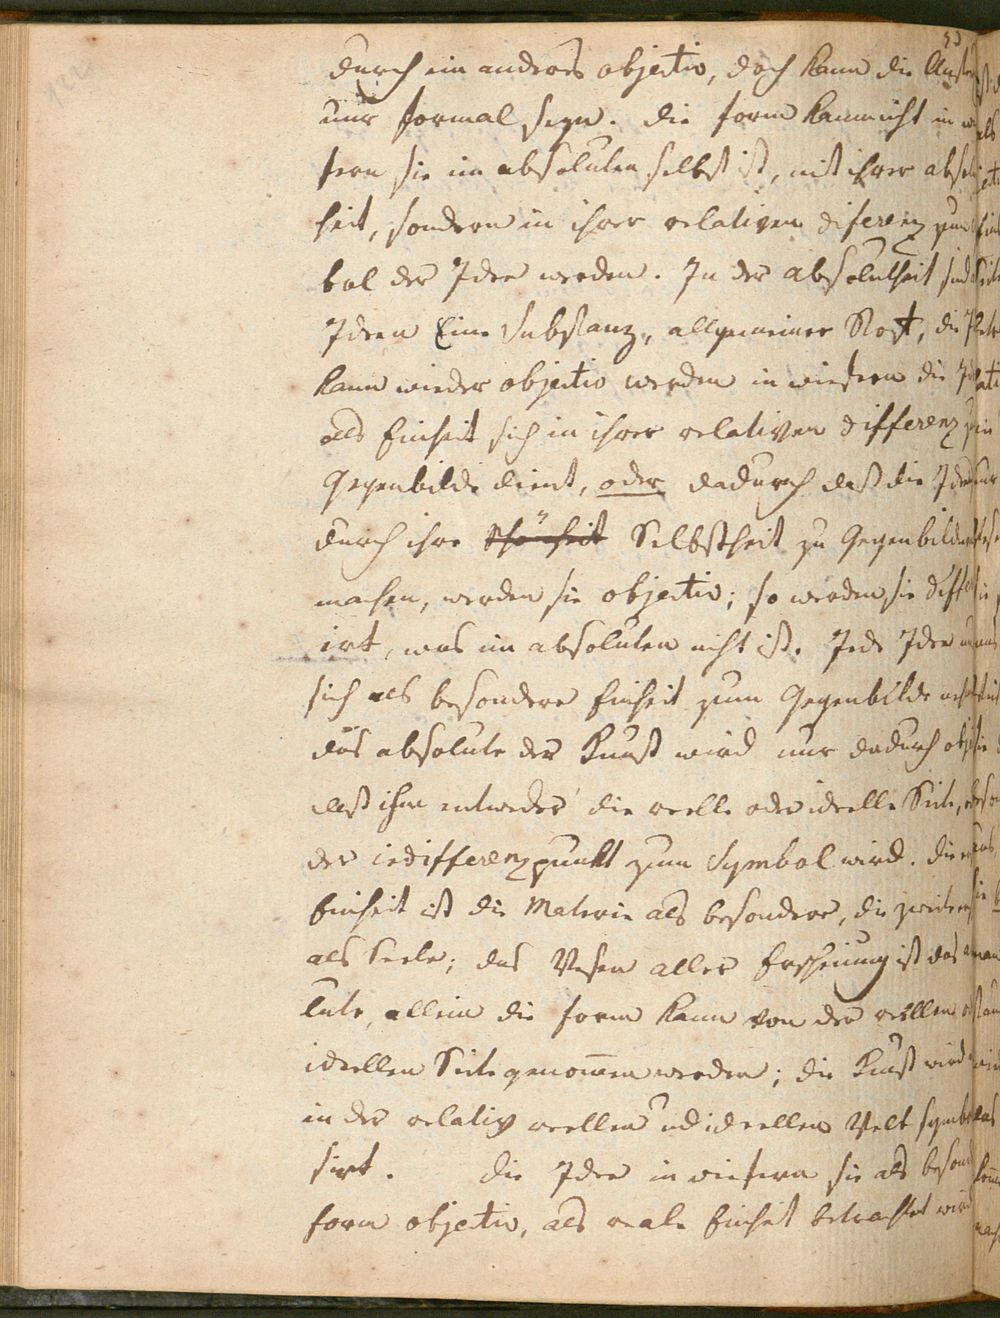 durch ein anderes objectiv, doch kann die Anste
nur formal seyn. die form kann nicht in w
fern sie im absoluten selbst ist, mit ihrer absol
heit, sondern in ihrer relativen diferenz zum
bol der Idee werden. In der absolutheit sind
Ideen Eine Substanz, allgemeiner Stoff, die
kann wieder objectiv werden in wiefern die Id
als Einheit sich in ihrer relativen differenz z
Gegenbilde dient, oder dadurch daß die Ide
durch ihre Schönheit Selbstheit zu Gegenbilder
machen, werden sie objectiv; so werden sie differ
irt, was im absoluten nicht ist. Jede Idee
sich als besondere Einheit zum Gegenbilde
das absolute der Kunst wird nur dadurch obj
daß ihm entweder die reelle oder ideelle Seite,
der indifferenzpunkt zum Symbol wird. die
Einheit ist die Materie als besondere, die zweite
als Seele; das Wesen aller Erscheinung ist das
lute, allein die form kann von der reellen
ideellen Seite genommen werden; die Kunst wird
in der relativ reellen und ideellen Welt symbo
sirt. die Idee in wiefern sie als besond
form objectiv, als reale Einheit betrachtet wird